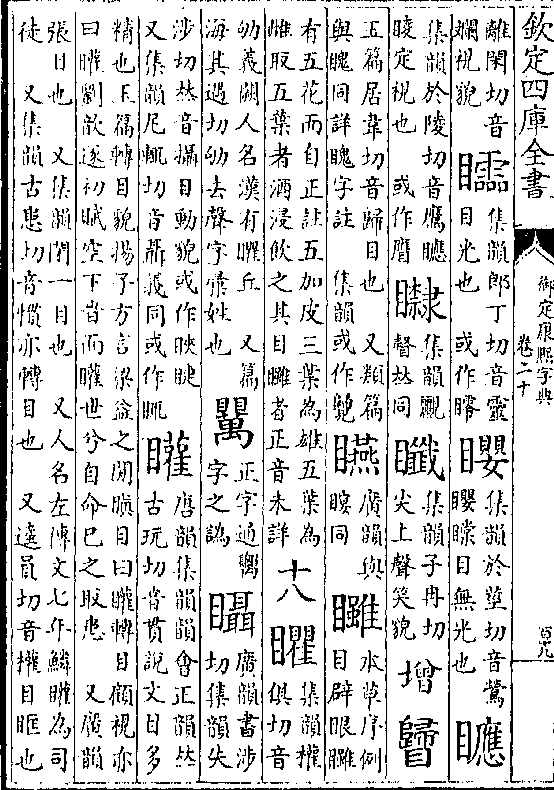 欽定四庫全書
御定康熙字典
卷二十
百九
離閑切音
斕視貌
矑
集韻郎丁切音靈
目光也 或作
集韻於莖切音鶯
瞠目無光也
集韻於陵切音鷹
定視也 或作膺
集韻覼
聲𠀤同
集韻子冉切
尖上聲笑貌
增
玉篇居韋切音歸目也 又類篇
與䙆同詳䙆字註 集韻或作
矊
廣韻與
同
本草序例
目辟眼𥌾
有五花而自正註五加皮三葉為雄五葉為
雌取五葉者酒浸飲之其目𥌾者正音未詳
十八
矍
集韻權
俱切音
劬義闕人名漢有丘 又篇
海其遇切劬去聲字彙姓也
正字通
字之譌
廣韻書涉
切集韻失
涉切𠀤音攝目動貌或作䀹睫
又集韻尼輒切音聶義同或作
矔
唐韻集韻韻會正韻𠀤
古玩切音貫說文目多
精也玉篇轉目貌揚子方言梁益之間瞋目曰矔轉目顧視亦
曰矔劉歆遂初賦空下眥而矔世兮自命己之取患 又廣韻
張目也 又集韻閉一目也 又人名左傳文七年鱗矔為司
徒 又集韻古患切音慣亦轉目也 又逵員切音權目眶也